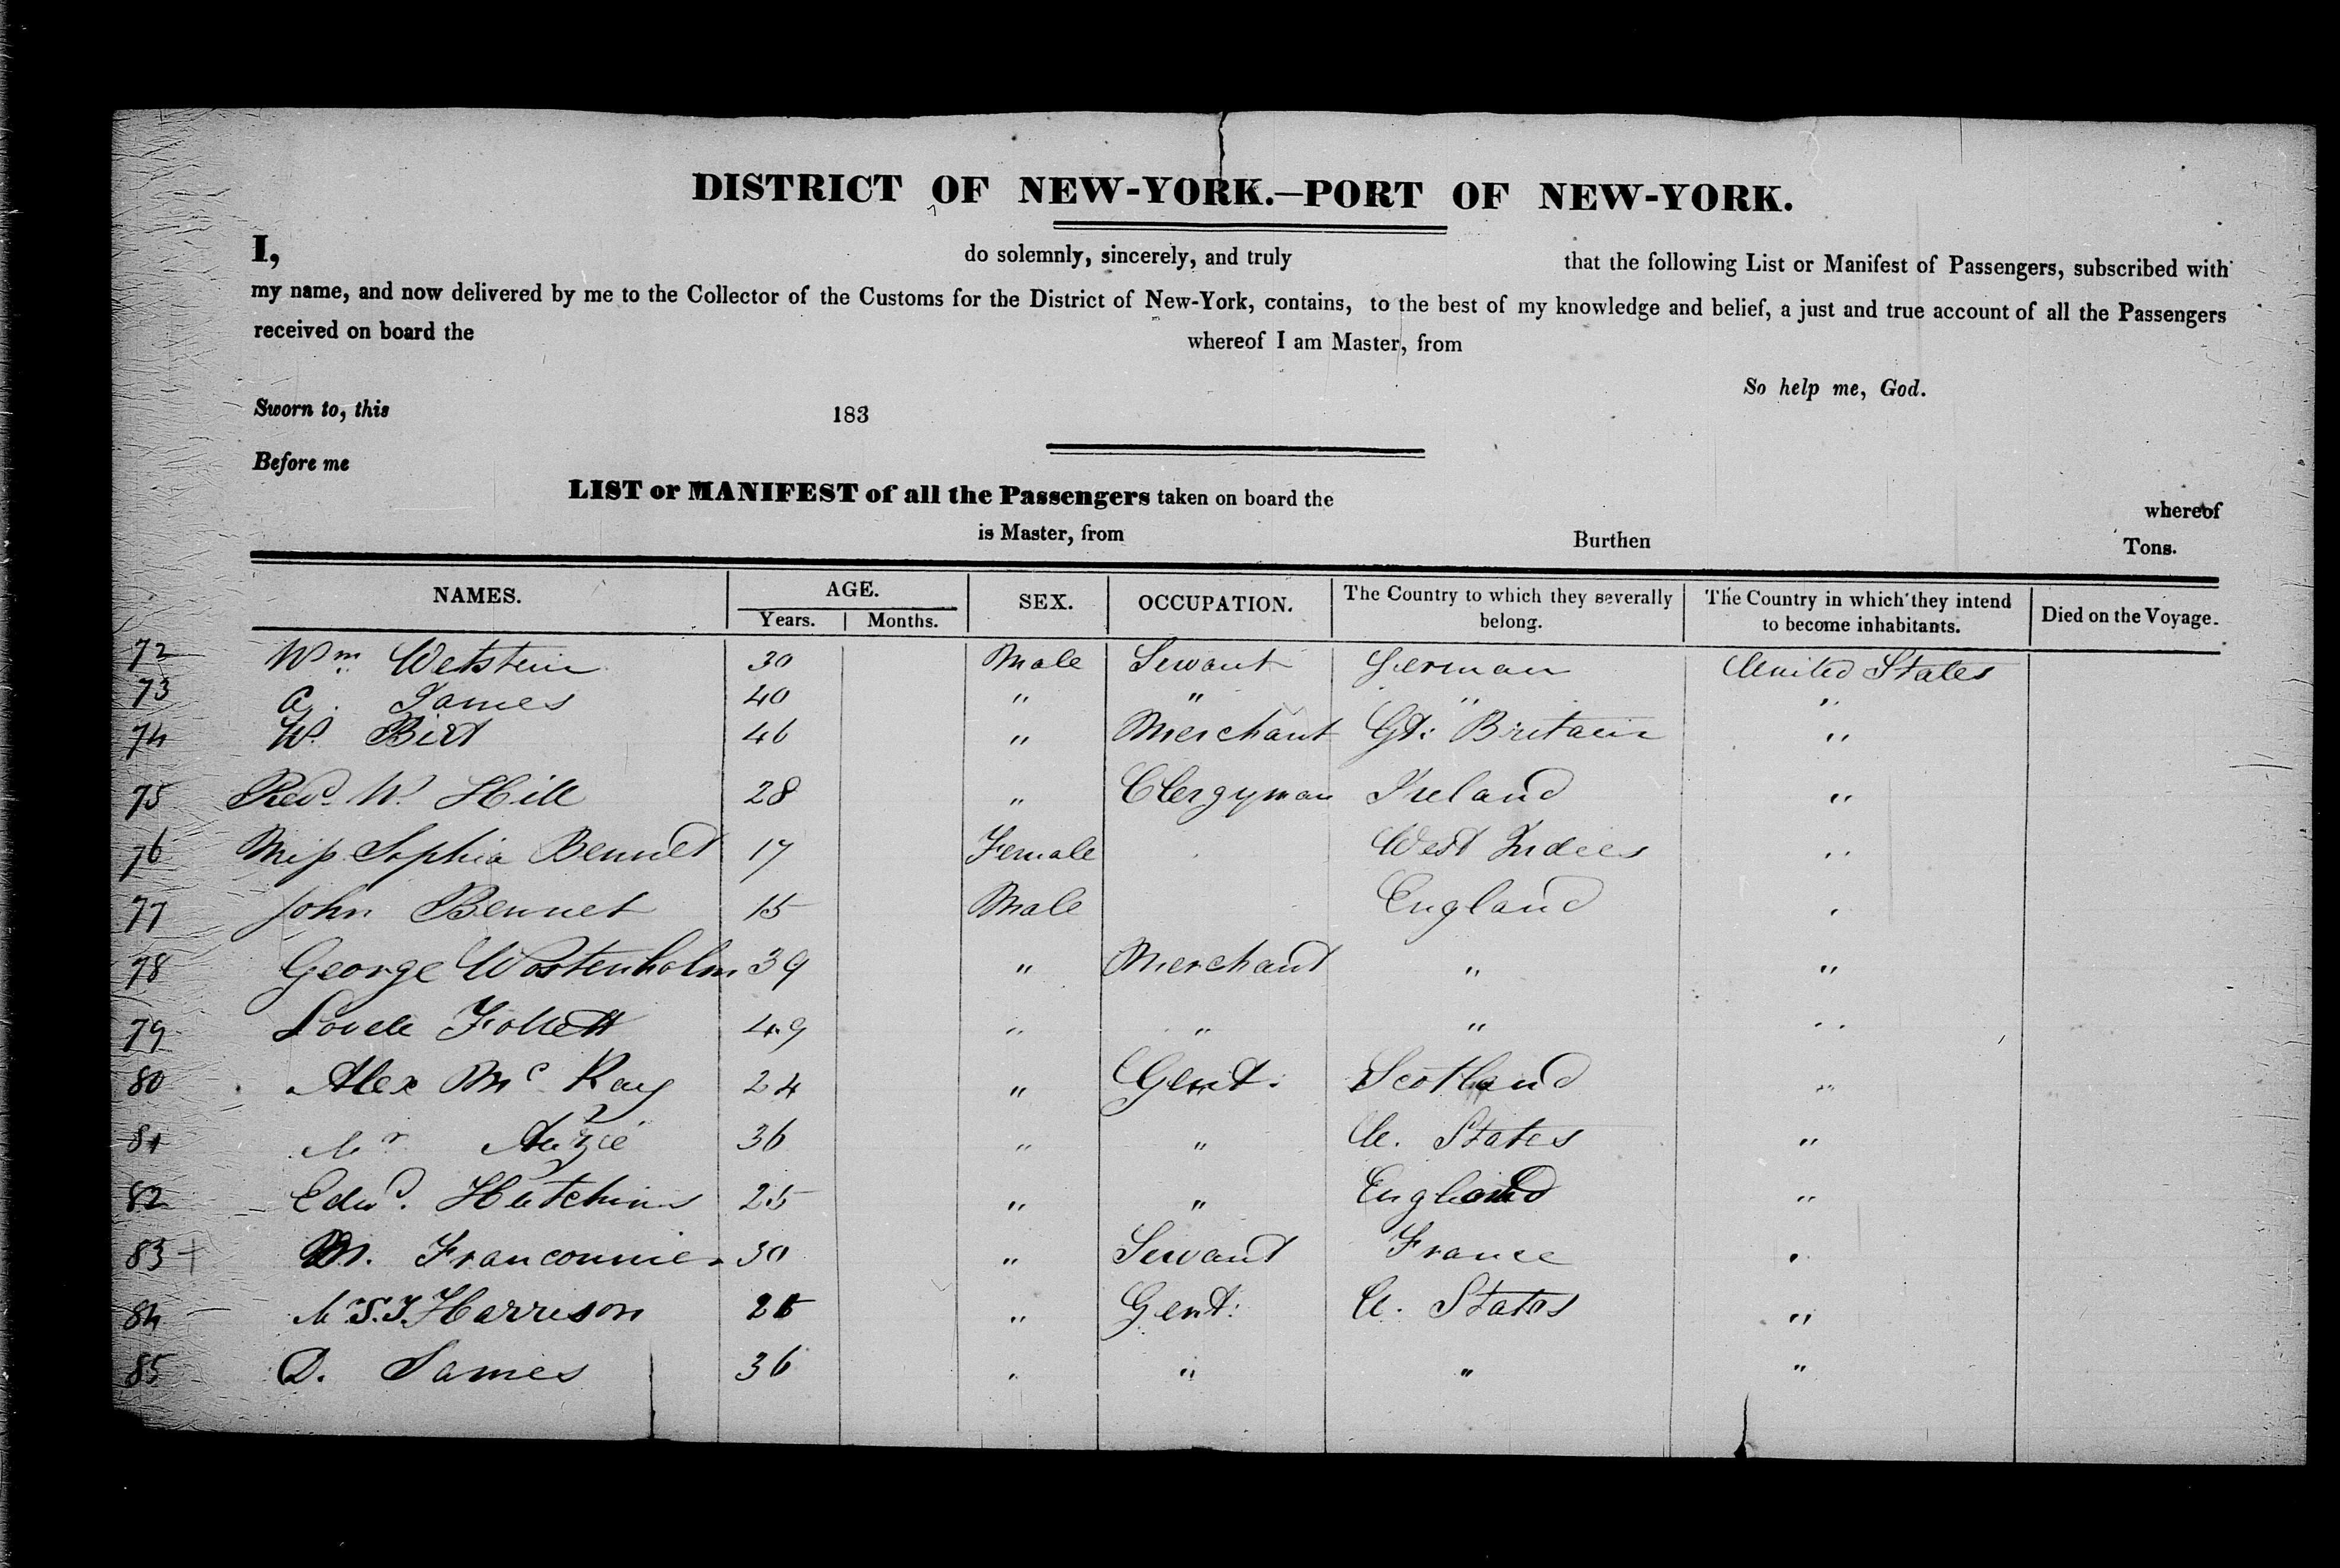 DISTRICT OF NEW-YORK.—PORT OF NEW-YORK.
I, do solemnly, sincerely, and truly that the following List or Manifest of Passengers, subscribed with
my name, and now delivered by me to the Collector of the Customs for the District of New-York, contains, to the best of my knowledge and belief, a just and true account of all the Passengers
received on board the whereof I am Master, from
So help me, God.
Sworn to, this 183
Before me
LIST or MANIFEST of all the Passengers taken on board the whereof
is Master, from Burthen Tons.
NAMES. AGE. SEX. OCCUPATION. The Country to which they severally belong. The Country in which they intend to become inhabitants. Died on the Voyage.
Years. Months.
72 Wm. Wetstein 30 Male Servant German United States
73 A. James 40 " " " "
74 W. Birt 46 " Merchant Gt: Britain "
75 Revd. W. Hill 28 " Clergyman Ireland "
76 Miss Sophia Bennet 17 Female West Indies "
77 John Bennet 15 Male England "
78 George Wostenholm 39 " Merchant " "
79 Follett 49 " " " "
80 Alex Mc Kay 24 " Gent. Scotland "
81 Mr 36 " " U. States "
82 Edwd. Hutchins 25 " " England "
83 + M. Franconnie 30 " Servant France "
84 Mr S.J. Harrison " Gent: U. States "
85 D. James 36 " " " "